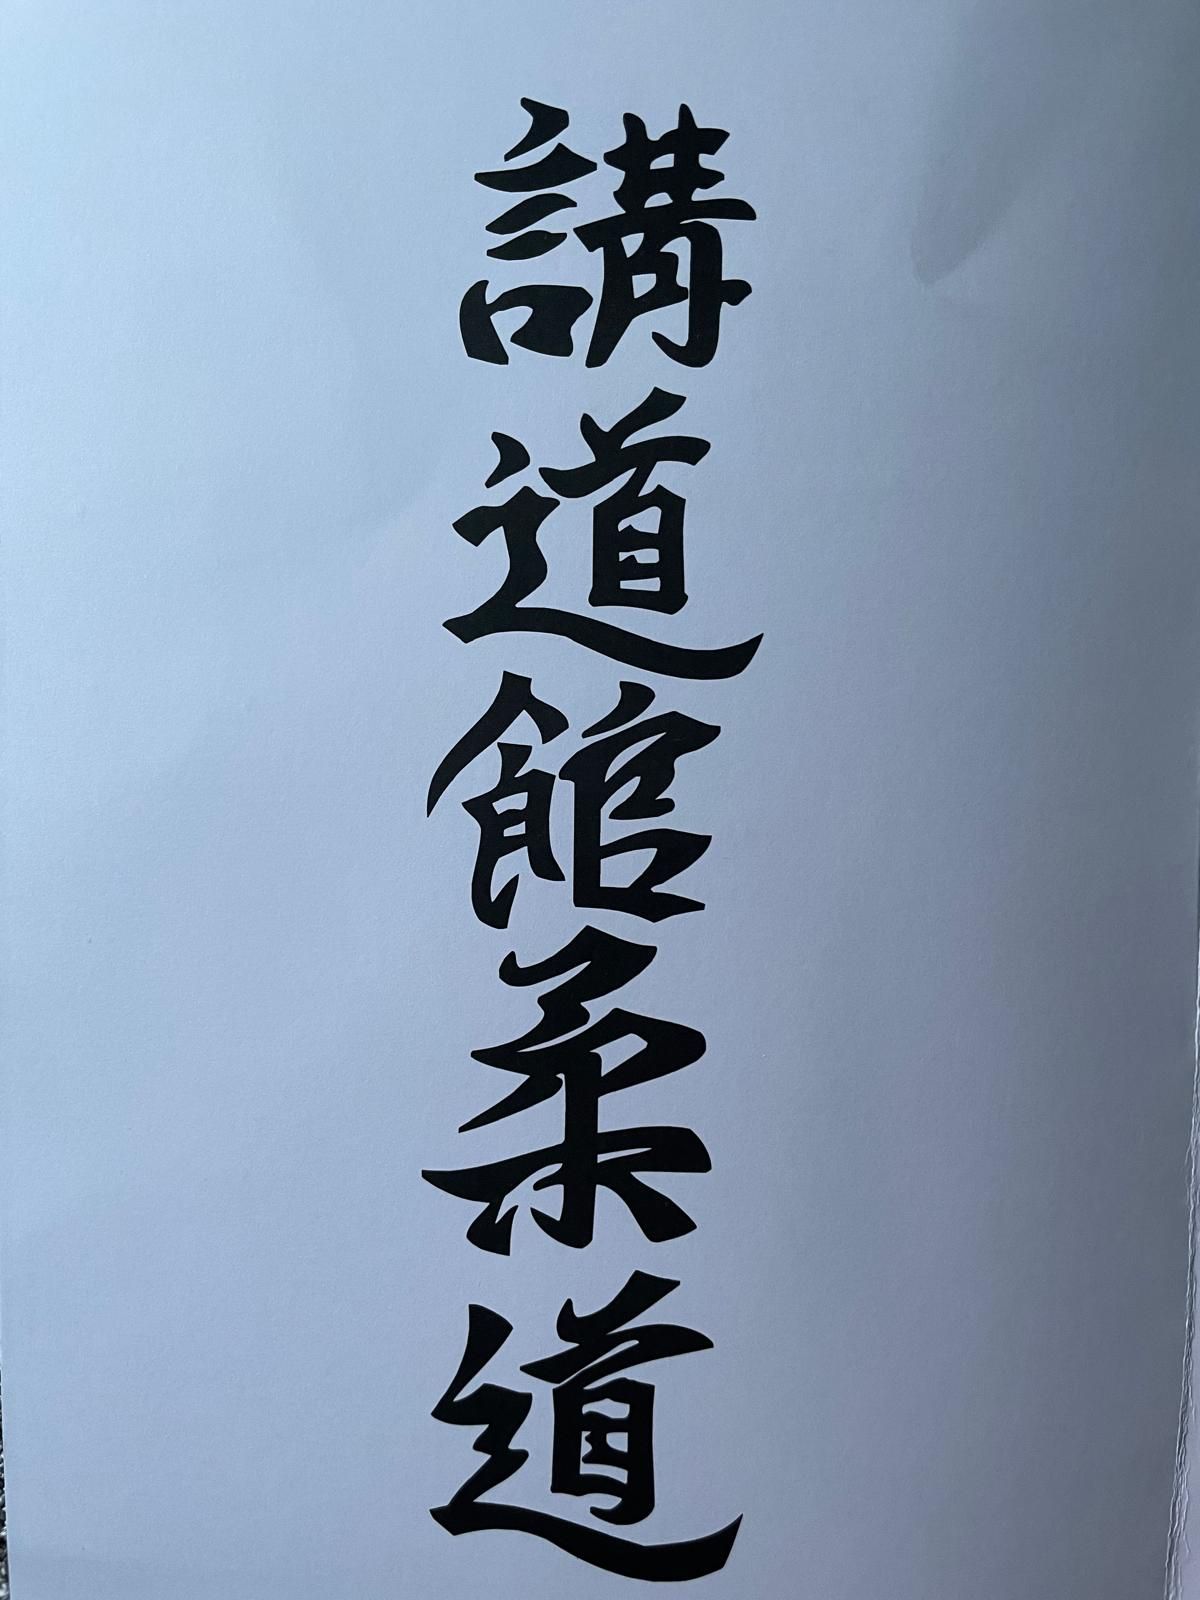 講道館柔道